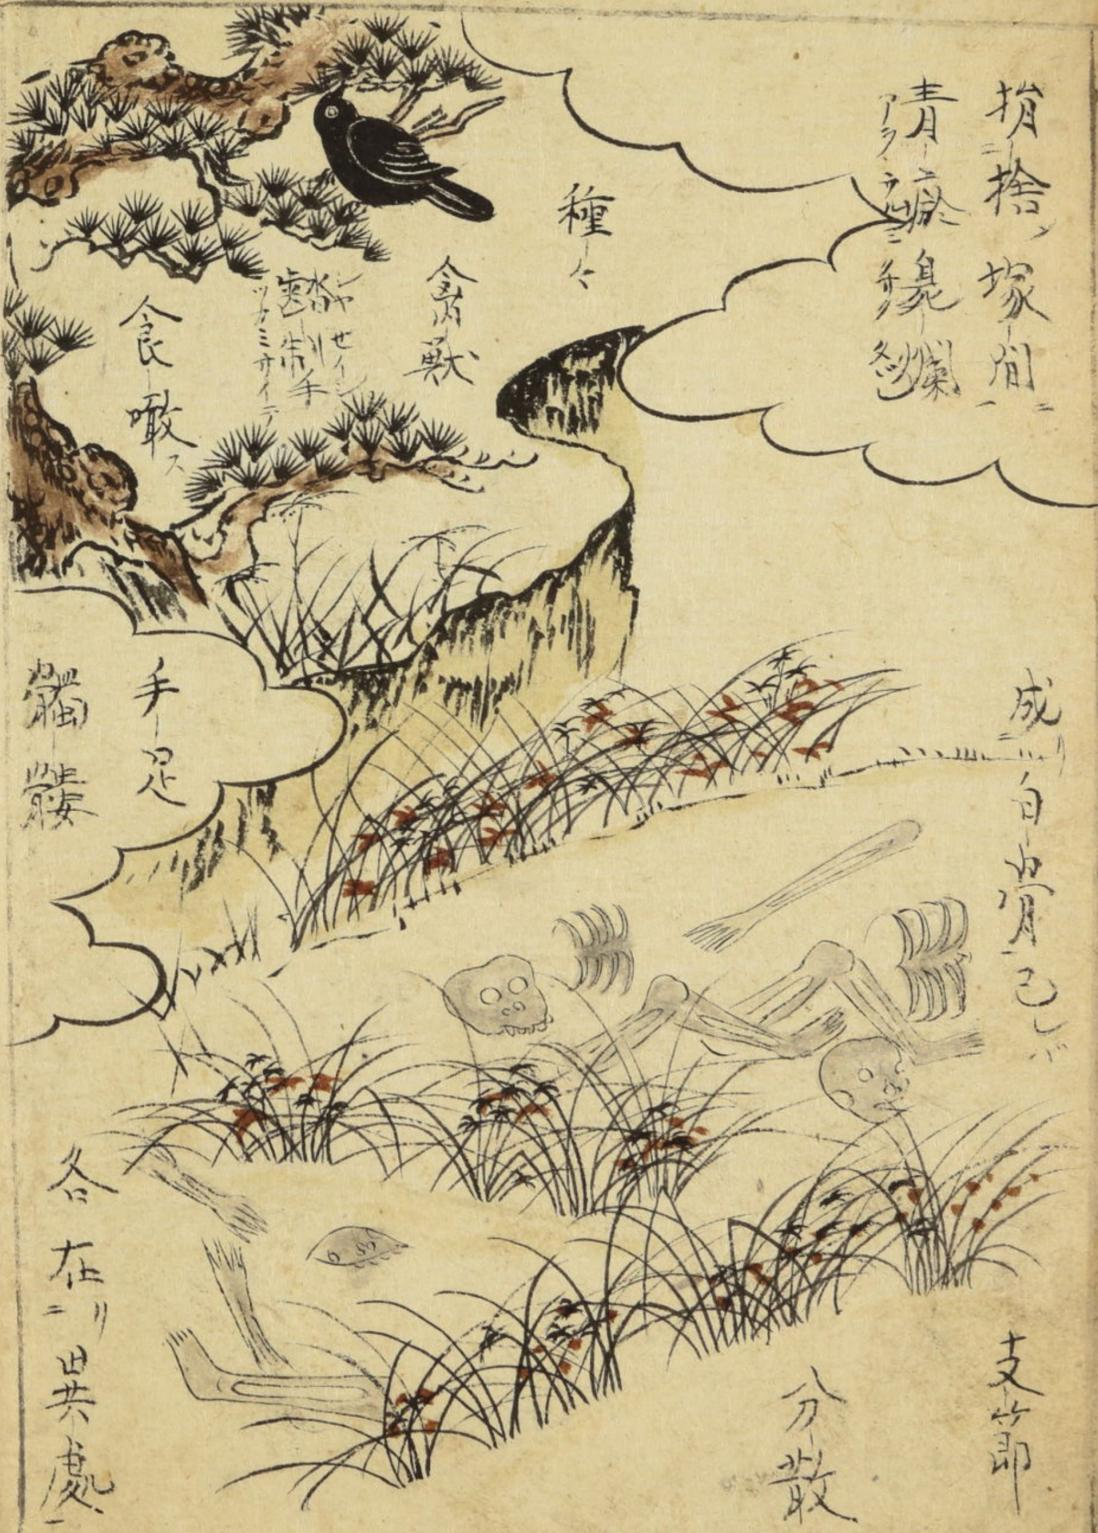 捐捨塚間ニ
青瘀臭爛
種々
禽獸
食噉ス
成リ白骨已
支節
分散
手足
髑髏
各在リ
異處